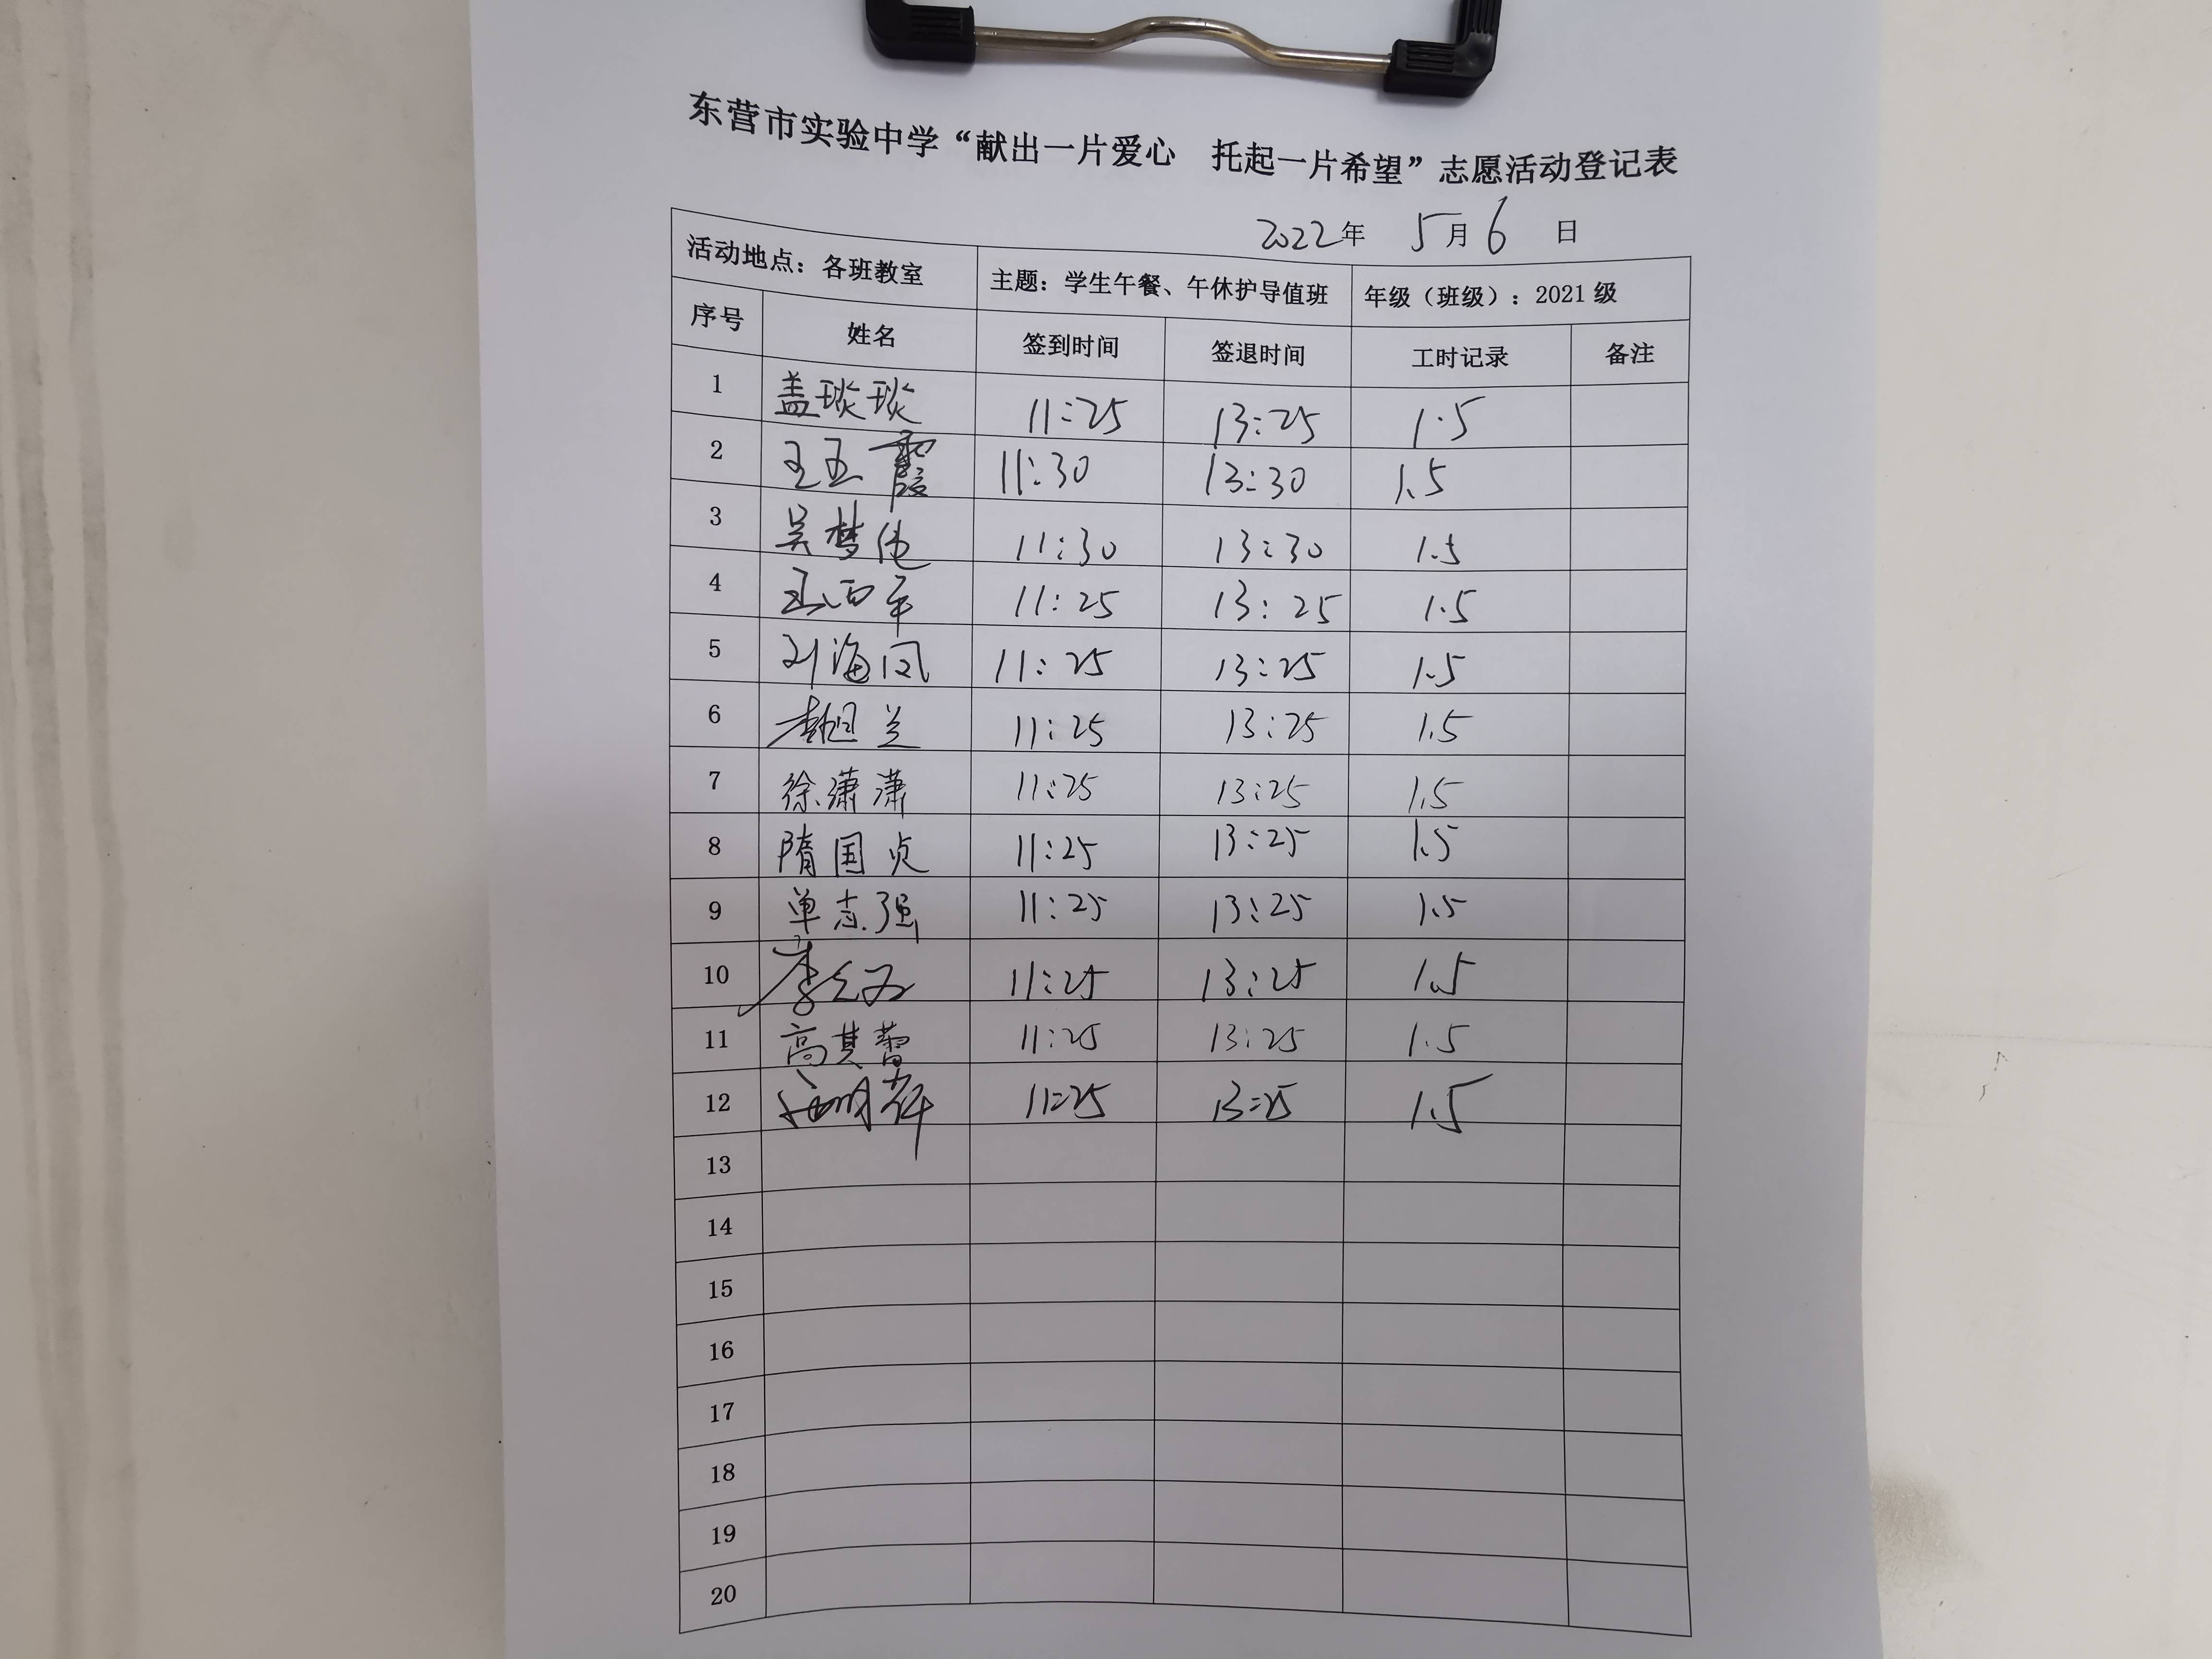 东营市实验中学“献出一片爱心 托起一片希望”志愿活动登记表
2022年 5月6 日
活动地点：各班教室 主题：学生午餐、午休护导值班 年级（班级）：2021级
序号 姓名 签到时间 签退时间 工时记录 备注
1 盖琰琰 11:25 13:25 1.5
2 王玉霞 11:30 13:30 1.5
3 吴梦伟 11:30 13:30 1.5
4 11:25 13:25 1.5
5 刘海凤 11:25 13:25 1.5
6 11:25 13:25 1.5
7 徐潇潇 11:25 13:25 1.5
8 隋国贞 11:25 13:25 1.5
9 单志强 11:25 13:25 1.5
10 11:25 13:25 1.5
11 高其蕾 11:25 13:25 1.5
12 11:25 13:25 1.5
13
14
15
16
17
18
19
20